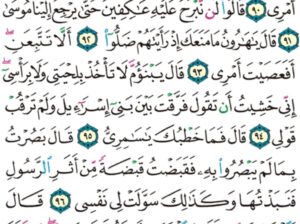 أَمْرِى ٩٠ قَالُوا۟ لَن نَّبْرَحَ عَلَيْهِ عَـٰكِفِينَ حَتَّىٰ يَرْجِعَ إِلَيْنَا مُوسَىٰ
٩١ قَالَ يَـٰهَـٰرُونُ مَا مَنَعَكَ إِذْ رَأَيْتَهُمْ ضَلُّوٓا۟ ٩٢ أَلَّا تَتَّبِعَنِ
أَفَعَصَيْتَ أَمْرِى ٩٣ قَالَ يَبْنَؤُمَّ لَا تَأْخُذْ بِلِحْيَتِى وَلَا بِرَأْسِىٓ
إِنِّى خَشِيتُ أَن تَقُولَ فَرَّقْتَ بَيْنَ بَنِىٓ إِسْرَٰٓءِيلَ وَلَمْ تَرْقُبْ
قَوْلِى ٩٤ قَالَ فَمَا خَطْبُكَ يَـٰسَـٰمِرِىُّ ٩٥ قَالَ بَصُرْتُ
بِمَا لَمْ يَبْصُرُوا۟ بِهِۦ فَقَبَضْتُ قَبْضَةً مِّنْ أَثَرِ ٱلرَّسُولِ
فَنَبَذْتُهَا وَكَذَٰلِكَ سَوَّلَتْ لِى نَفْسِى ٩٦ قَالَ